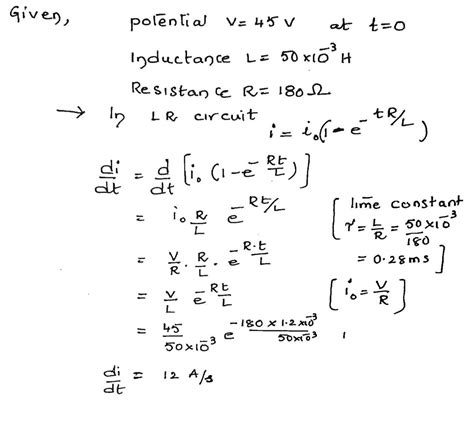 Given, potential V = 45 V at t=0
Inductance L = 50×10⁻³ H
Resistance R = 180 Ω
→ In LR circuit i = i₀(1 - e^(-tR/L))
di/dt = d/dt [i₀ (1 - e^(-Rt/L))]
= i₀ R/L e^(-Rt/L)
= V/R · R/L · e^(-R·t/L)
= V/L e^(-Rt/L)
= 45/(50×10⁻³) e^(-180 × 1.2×10⁻³/(50×10⁻³))
di/dt = 12 A/s
[ time constant
τ = L/R = 50×10⁻³/180
= 0.28ms ]
[ i₀ = V/R ]